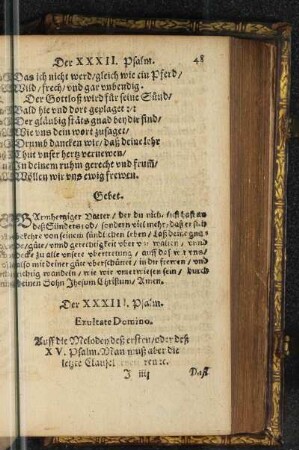 Der XXXII. Psalm. 48
Das ich nicht werd/gleich wie ein Pferd/
Wild/frech/vnd gar vnbendig.
Der Gottloß wird für seine Sünd/
Bald hie vnd dort geplaget :,:
Der gläubig stäts gnad bey dir find/
Wie vns dein wort zusaget/
Drumb dancken wir/daß deine lehr
Thut vnser hertz vernewen/
In deinem ruhm gerecht vnd frum/
Wöllen wir vns ewig frewen.
Gebet.
Barmhertziger Vatter/ der du nicht lust hast an
deß Sünders tod/ sondern viel mehr/daß er sich
bekehre von seinem sündlichen leben/ laß deine gna-
de/güte/vnd gerechtigkeit vber vns walten/ vnd
decke zu alle vnsere vbertrettung/ auff daß wir vns/
also mit deiner güte vberschüttet/ in dir frewen/ vnd
richtig wandeln/ wie wir vnterwiesen sein/ durch
deinen Sohn Jhesum Christum/ Amen.
Der XXXIII. Psalm.
Exultate Domino.
Auff die Melodey deß ersten/oder deß
XV. Psalm. Man muß aber die
letzte Clausel
J iiij Daß